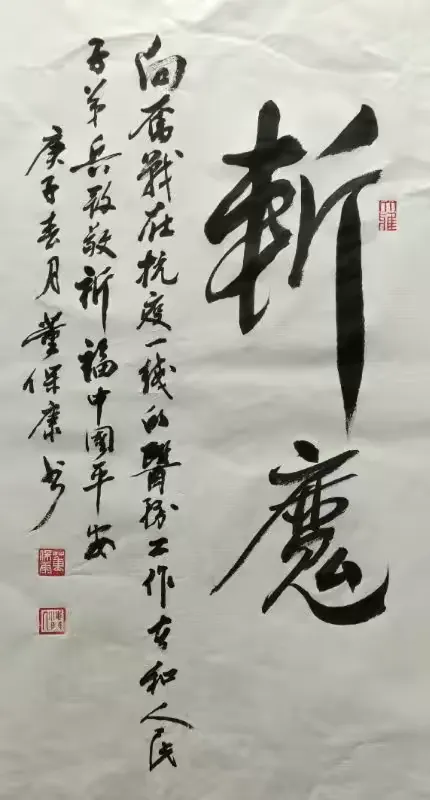 斬魔
向奮戰在抗疫一线的醫務工作者和人民
子弟兵致敬祈福中國平安
庚子春月董保康书